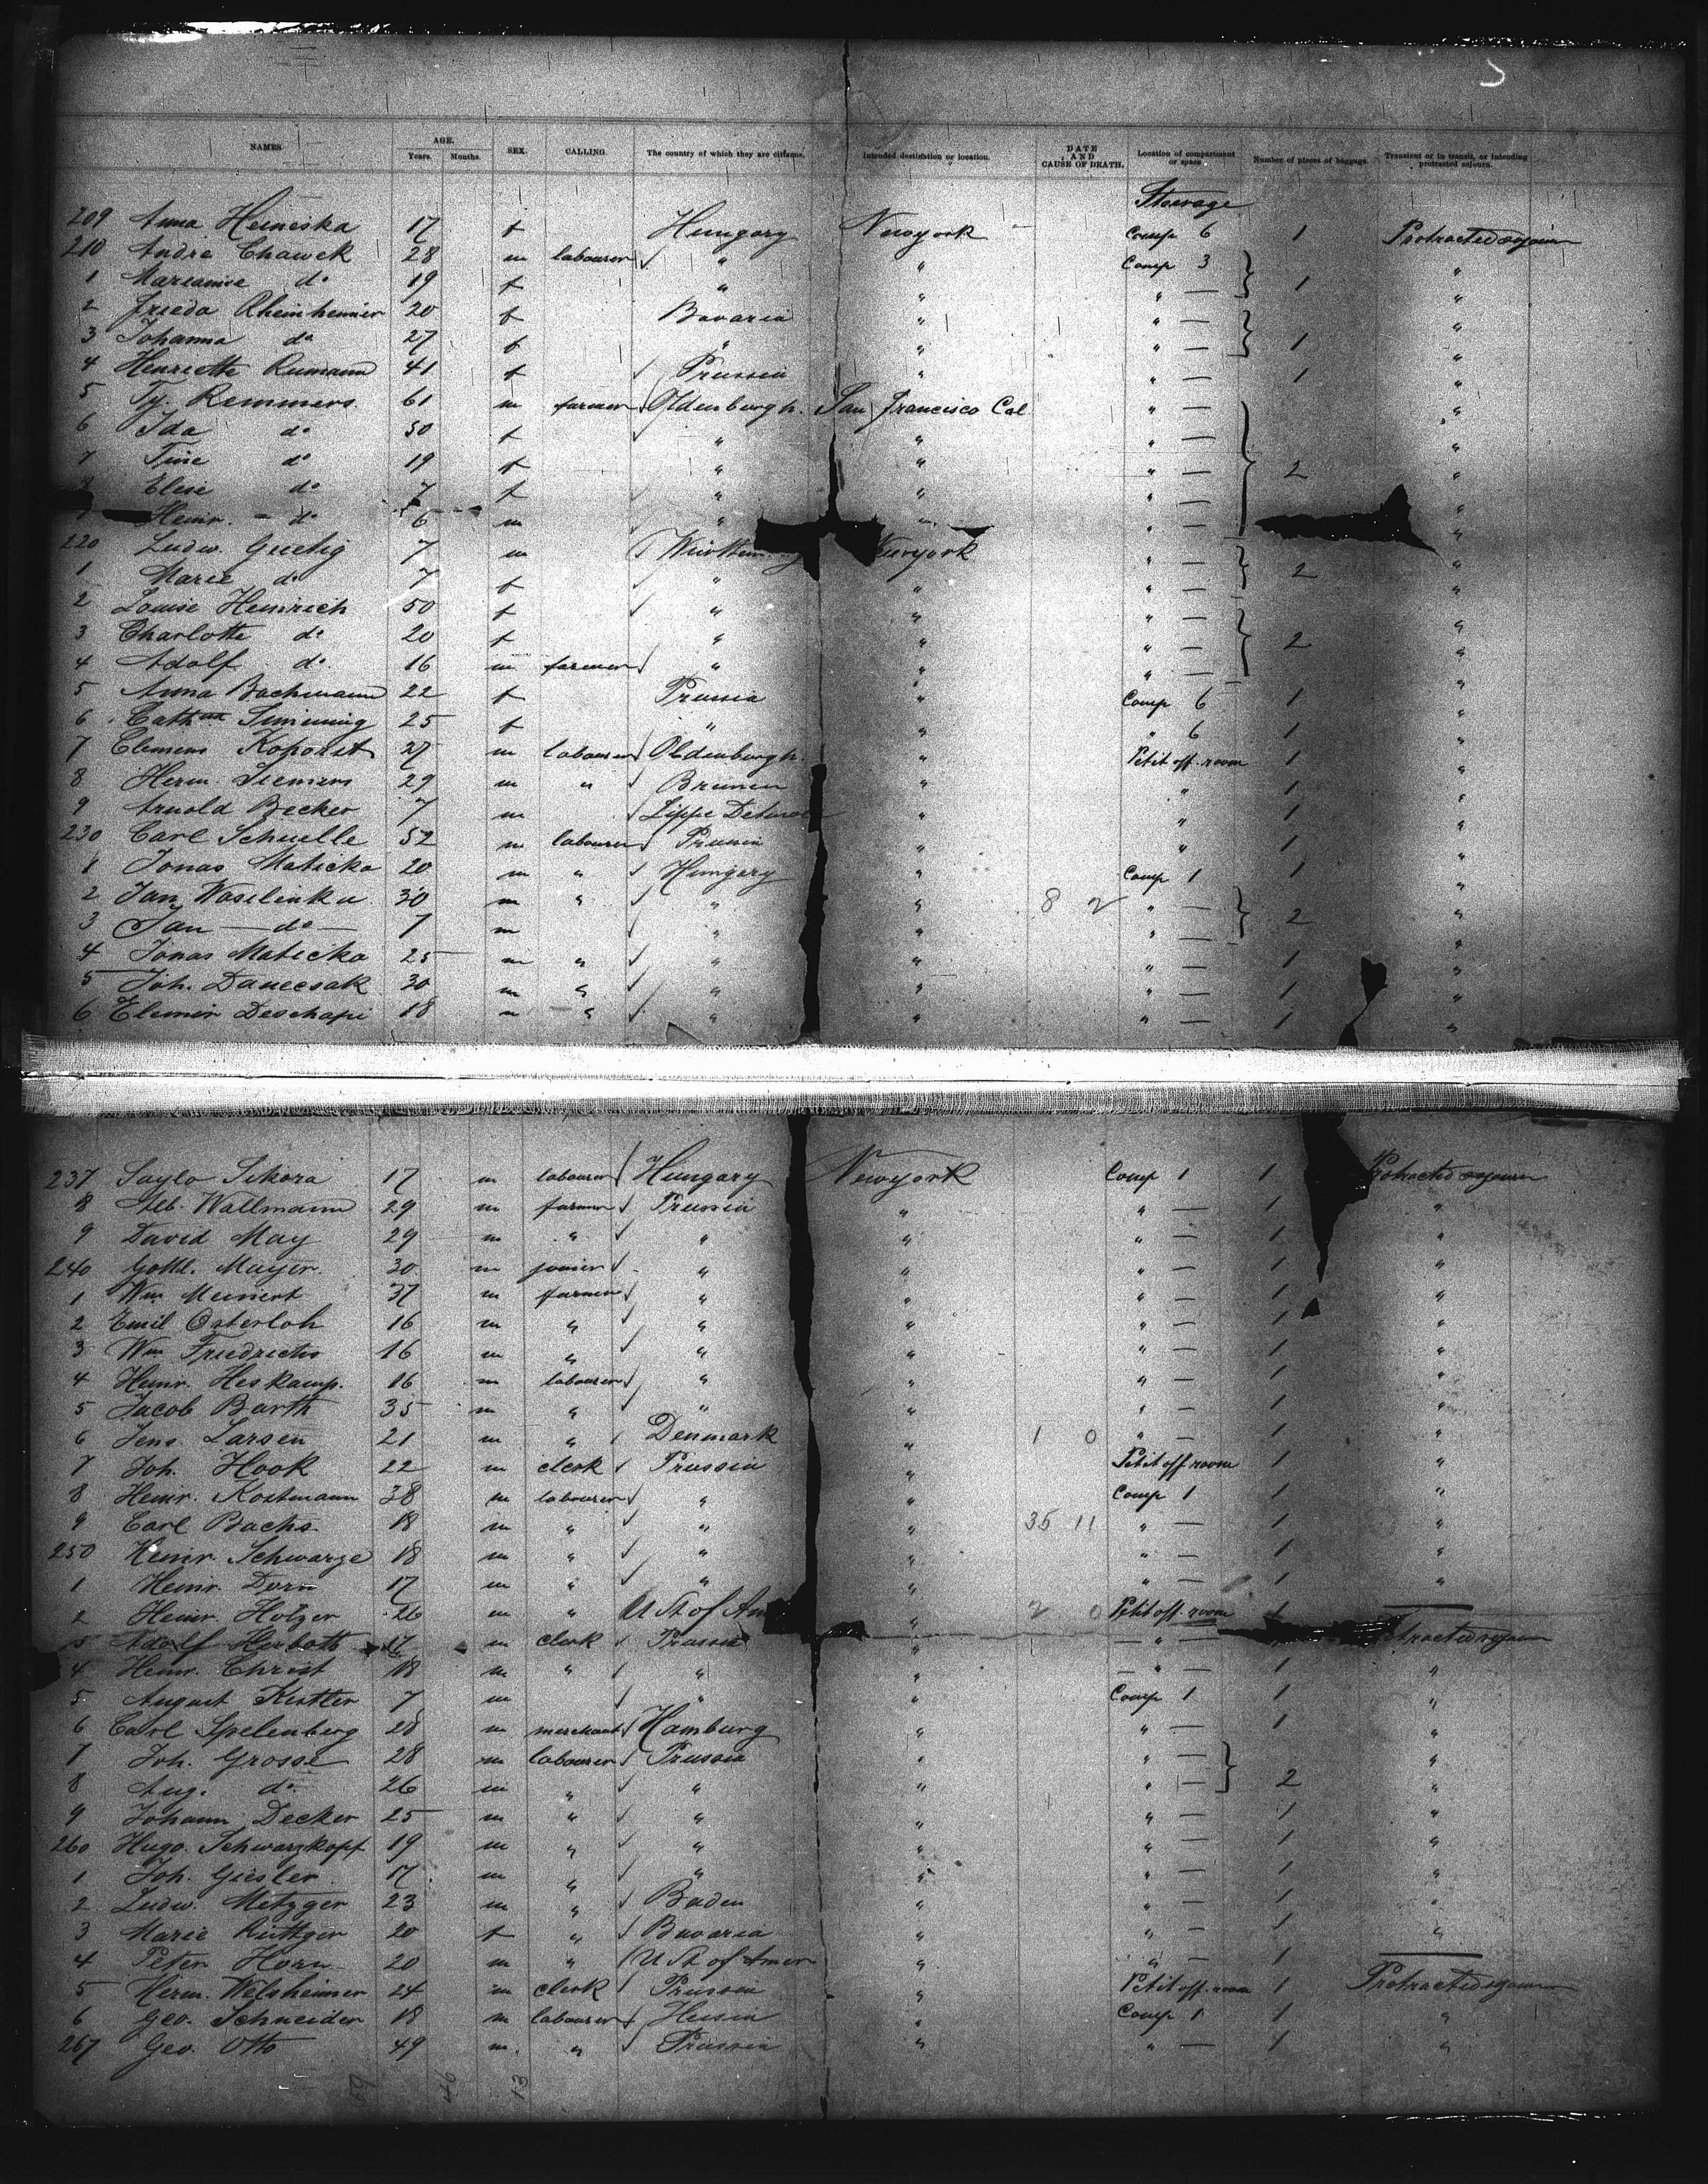 NAMES AGE. Years. Months. SEX. CALLING. The country of which they are citizens. Intended destination or location. DATE AND CAUSE OF DEATH. Location of compartment or space. Number of pieces of baggage. Transient or in transit, or intending protracted sojourn.
Steerage
209 Anna 17 f Hungary Newyork Comp 6 1 Protracted sojourn
210 Andre Chawek 28 m labourer " " Comp 3 "
1 Marianne do 19 f " " " — 1 "
2 Frieda Rheinheimer 20 f Bavaria " " — "
3 Johanna do 27 f " " " — 1 "
4 Henriette Rumann 41 f Prussia " " — 1 "
5 Remmers 61 m farmer Oldenburgh. San Francisco Cal " — "
6 Ida do 50 f " " " — "
7 Tine do 19 f " " " — 2 "
8 Elise do 7 f " " " — "
Heinr. do 6 m " " " — "
220 Ludw. Guetig 7 m Newyork " — "
1 Marie do 7 f " " " — 2 "
2 Louise Heinrich 50 f " " " — "
3 Charlotte do 20 f " " " — 2 "
4 Adolf do 16 m farmer " " " — "
5 Anna Bachmann 22 f Prussia " Comp 6 1 "
6 25 f " " " 6 1 "
7 Clemens Kohorst 27 m labourer Oldenburgh. " Petit off. room 1 "
8 Herm. Siemers 29 m " Bremen " " 1 "
9 Arnold Becker 7 m Lippe " " 1 "
230 Carl Schuelle 52 m labourer Prussia " " 1 "
1 Jonas Maticka 20 m " Hungary " Comp 1 1 "
2 Jan Waselinka 30 m " " " 8 2 " — "
3 Jan — do — 7 m " " " — 2 "
4 Jonas Maticka 25 m " " " " — 1 "
5 Joh. Danecsak 30 m " " " " — 1 "
6 Elemir Deschapi 18 m " " " " — 1 "
237 Saylo Sikora 17 m labourer Hungary Newyork Comp 1 1 Protracted sojourn
8 Alb. Wallmann 29 m farmer Prussia " " — 1 "
9 David May 29 m " " " " — 1 "
240 Gottl. Mayer. 30 m joiner " " " — 1 "
1 Wm Meinert 37 m farmer " " " — 1 "
2 Emil Osterloh 16 m " " " " — 1 "
3 Wm Friedrichs 16 m " " " " — 1 "
4 Heinr. Heskamp. 16 m labourer " " " — 1 "
5 Jacob Barth 35 m " " " " — 1 "
6 Jens. Larsen 21 m " Denmark " 1 0 " — 1 "
7 Joh. Hook 22 m clerk Prussia " Petit off room 1 "
8 Heinr. Kostmann 38 m labourer " " Comp 1 1 "
9 Carl Bachs. 18 m " " " 35 11 " — 1 "
250 Heinr. Schwarze 18 m " " " " — 1 "
1 Heinr. Dorn 17 m " " " " — 1 "
2 Heinr. Holzer 26 m " U St of Am " 2 0 Petit off. room 1 —
Adolf Herboth 17 m clerk Prussia " — " — tracted sojourn
4 Heinr. Christ 18 m " " " — " — 1 "
5 August Kistler 7 m " " Comp 1 1 "
6 Carl Spelenberg 28 m merchant Hamburg " " — 1 "
7 Joh. Grosse 28 m labourer Prussia " " — "
8 Aug. do 26 m " " " " — 2 "
9 Johann Decker 25 m " " " " — 1 "
260 Hugo. Schwarzkopf 19 m " " " " — 1 "
1 Joh. Giesler 17 m " " " " — 1 "
2 Ludw. Metzger 23 m " Baden " " — 1 "
3 Marie Rüttger 20 f " Bavaria " " — 1 "
4 Peter Horn 20 m " U St of Amer " " — 1 —
5 Herm. Welsheimer 24 m clerk Prussia " Petit off. room 1 Protracted sojourn
6 Geo. Schneider 18 m labourer Hessia " Comp 1 1 "
267 Geo. Otto 49 m. " Prussia " " — 1 "
59 46 13